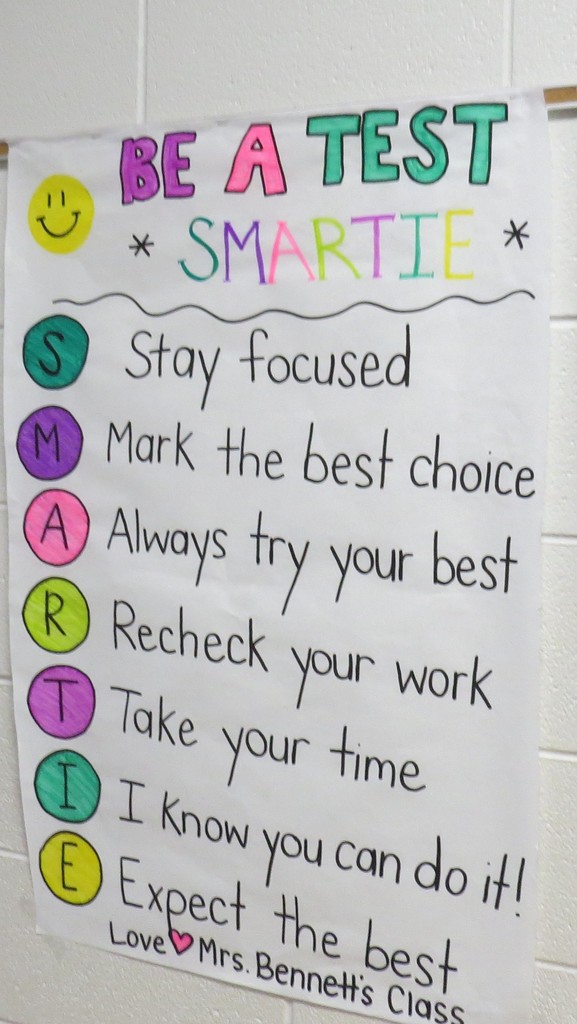 BE A TEST
* SMARTIE *
S Stay focused
M Mark the best choice
A Always try your best
R Recheck your work
T Take your time
I I know you can do it!
E Expect the best
Love ♥ Mrs. Bennett's Class